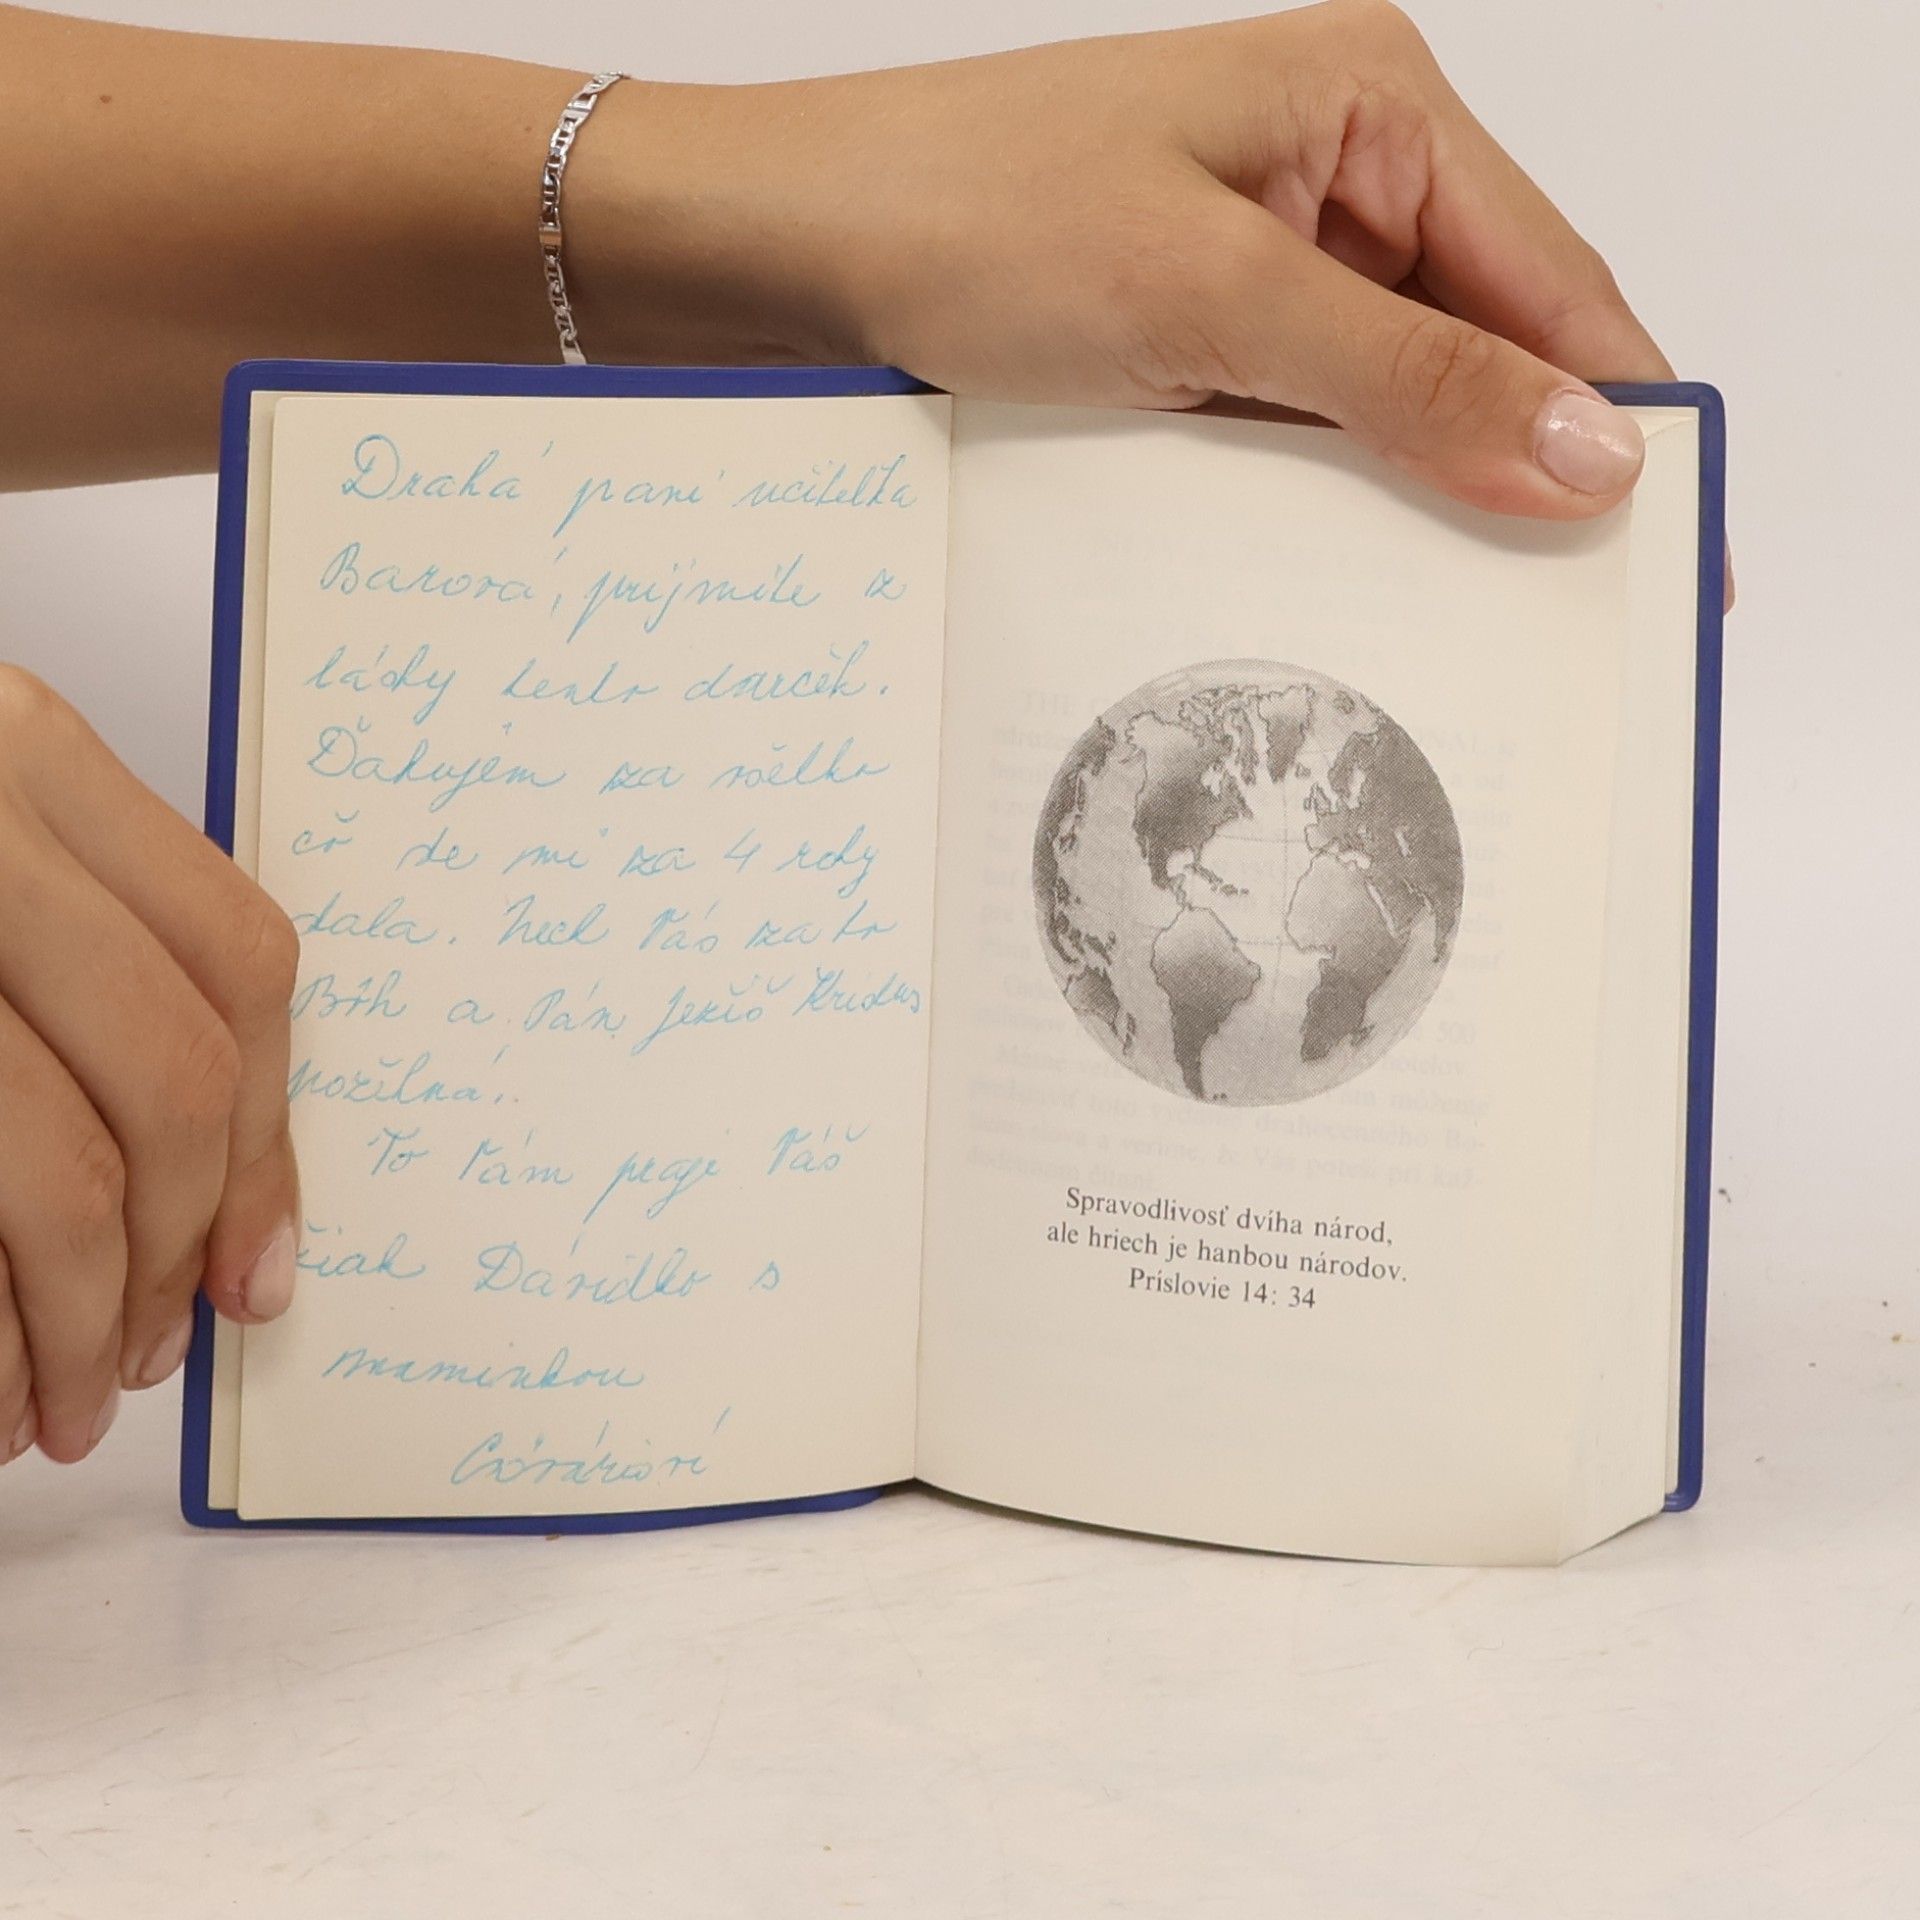 Drahá pani učiteľka
Barová, prijmite z
lásky tento darček.
Ďakujem za všetko
čo ste mi za 4 roky
dala. Nech Vás za to
Bôh a Pán Ježiš Kristus
požehná!
To Vám praje Váš
žiak Dávidko s
maminkou
Spravodlivosť dvíha národ,
ale hriech je hanbou národov.
Príslovie 14: 34